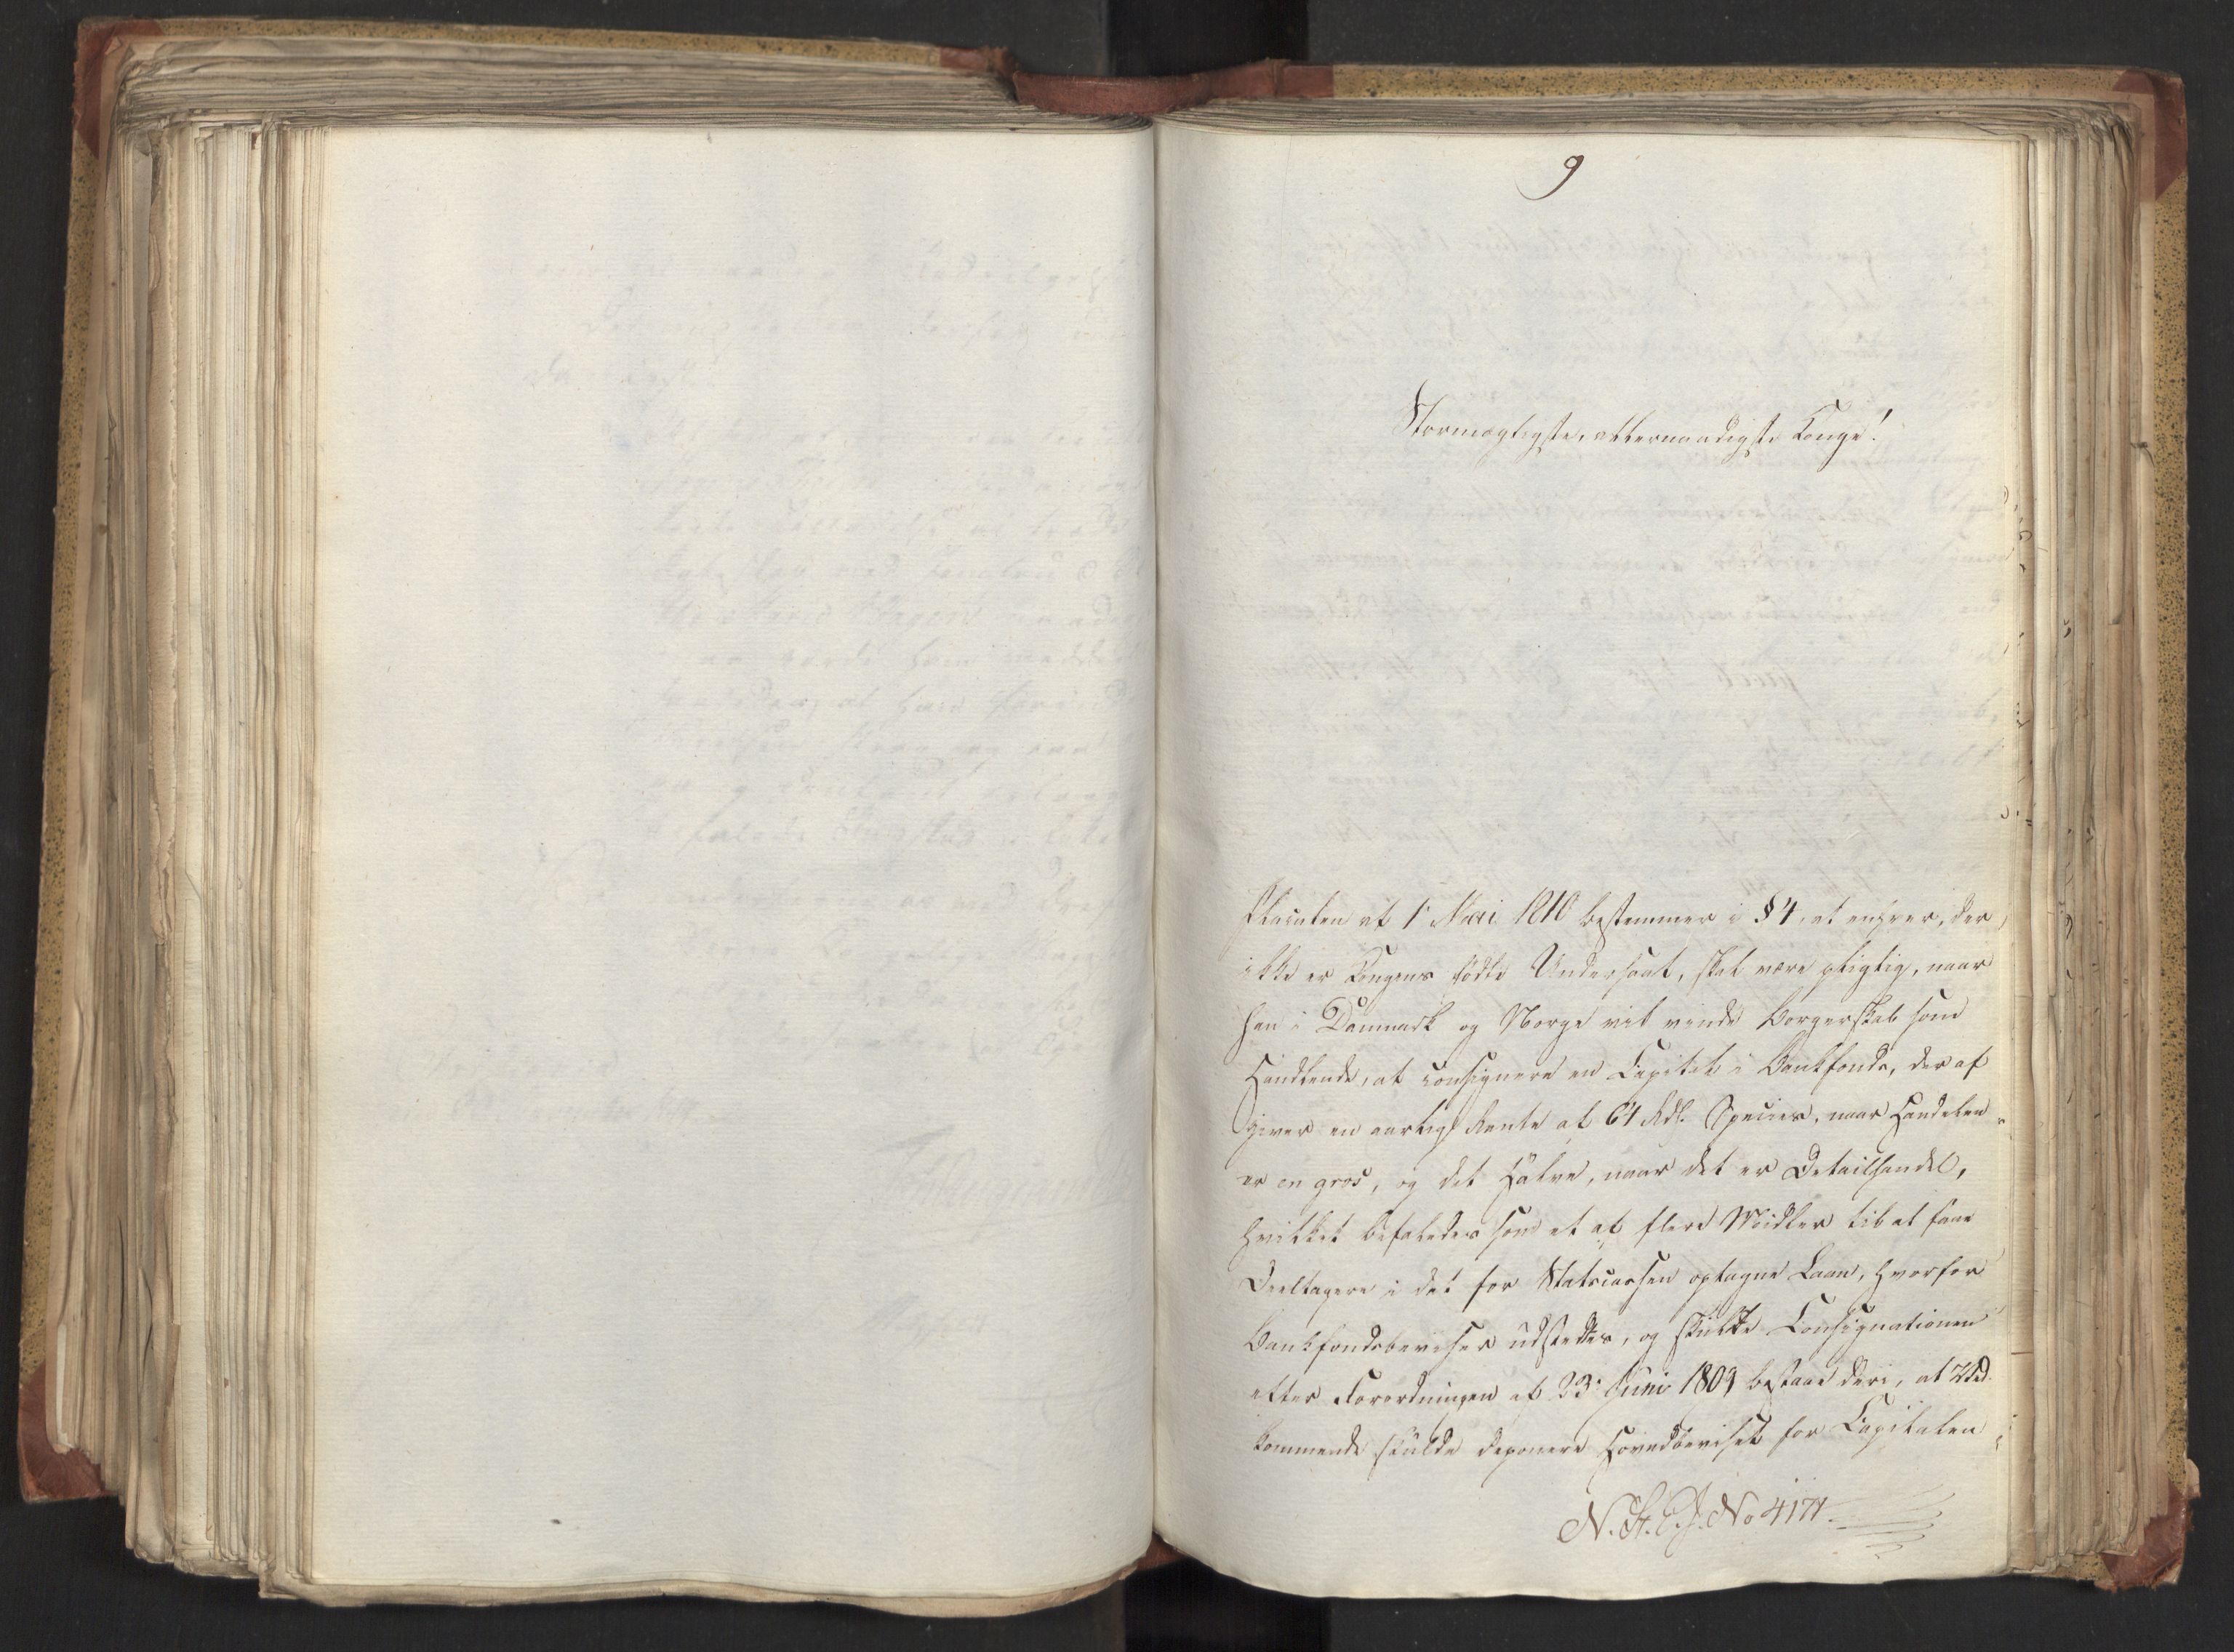 9
Stormægtigste, allernaadigste Konge!
Placaten af 1. Mai 1810 bestemmer i § 4, at enhver, der
ikke er Kongens fødte Undersaat, skal være pligtig, naar
han i Danmark og Norge vil vinde Borgerskab som
Handlende, at consignere en Capital i Bankfonds, der af
giver en aarlig Rente af 64 Rdl. Species, naar Handelen
er en gros, og det Halve, naar det er Detailhandel,
hvilket befaledes som et af flere Midler til at faae
Deeltagere i det for Statscassen optagne Laan, hvorfor
Bankfondsbeviser udstedtes, og skulde Consignationen
efter Forordningen af 23. Juni 1809 bestaae deri, at Ved-
kommende skulde deponere Hovedbeviset for Capitalen
N. St. C. J. No 417